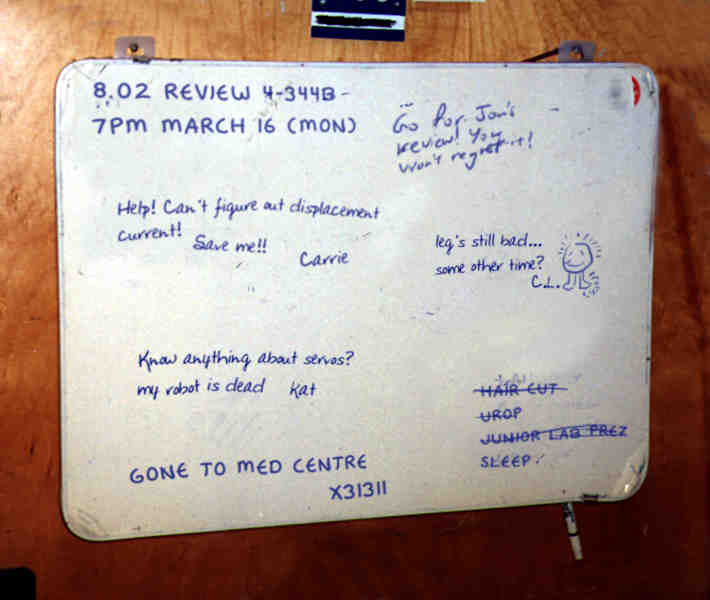 8.02 REVIEW 4-344B -
7PM MARCH 16 (MON)
Go for Jon's
review! You
won't regret it!
Help! Can't figure out displacement
current!
Save me!!
Carrie
leg's still bad...
some other time?
C.L.
Know anything about servos?
my robot is dead Kat
HAIR CUT
UROP
JUNIOR LAB PREZ
SLEEP!
GONE TO MED CENTRE
X31311